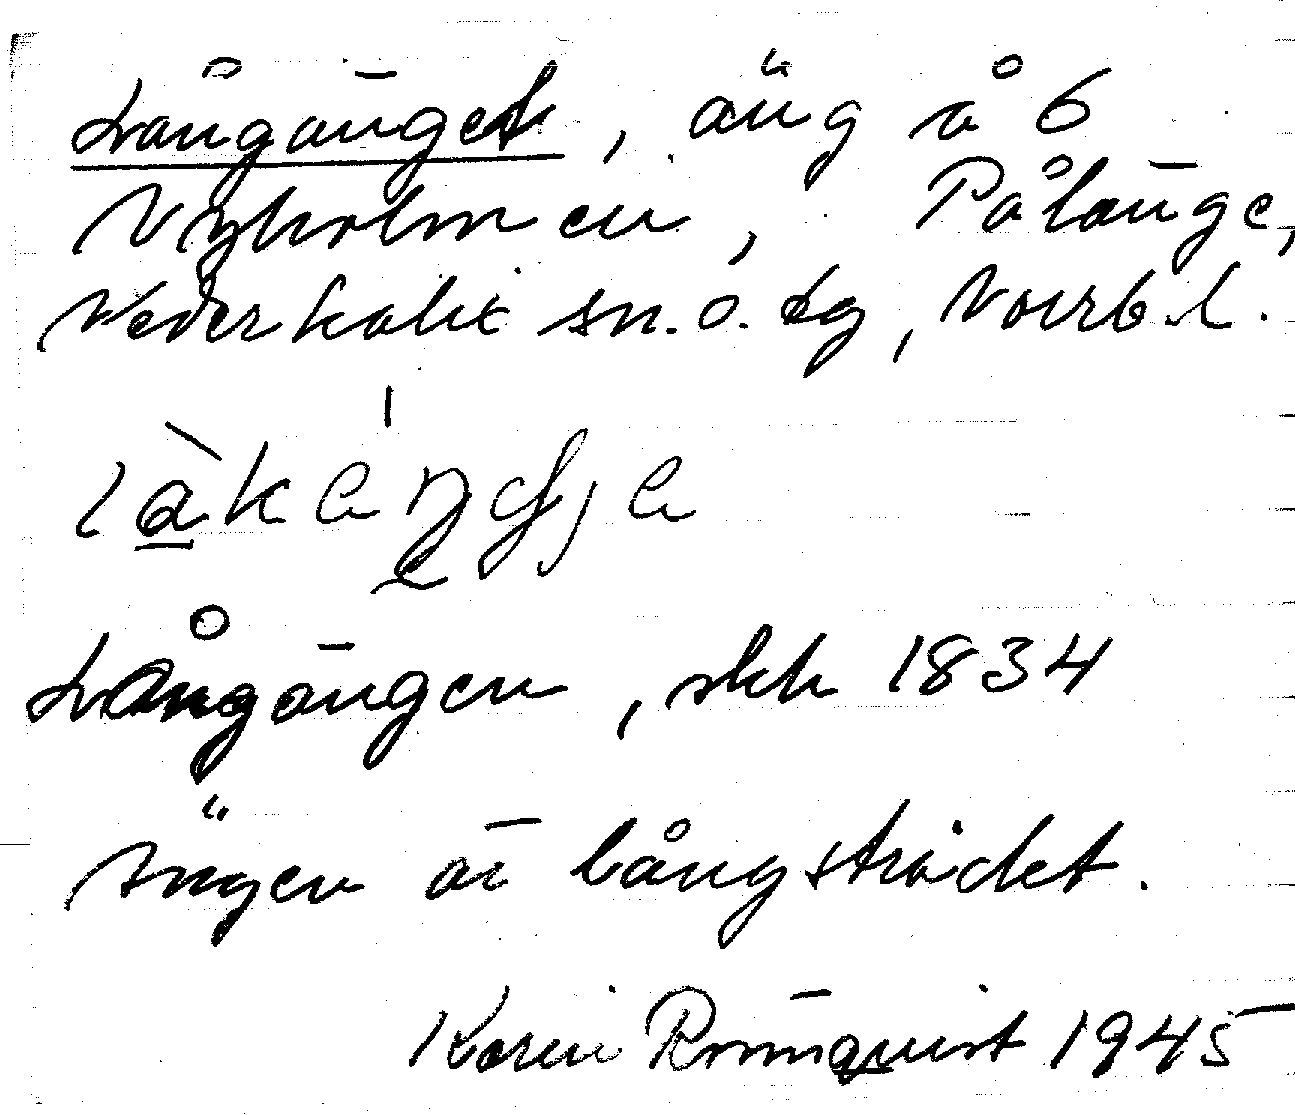 Långänget, äng å 6
Nyholmen, Pålänge,
Nederkalix sn. o. tg, Norrb. l.
Långängen, skh 1834
Ängen är långsträckt.
Karin Rönnquist 1945